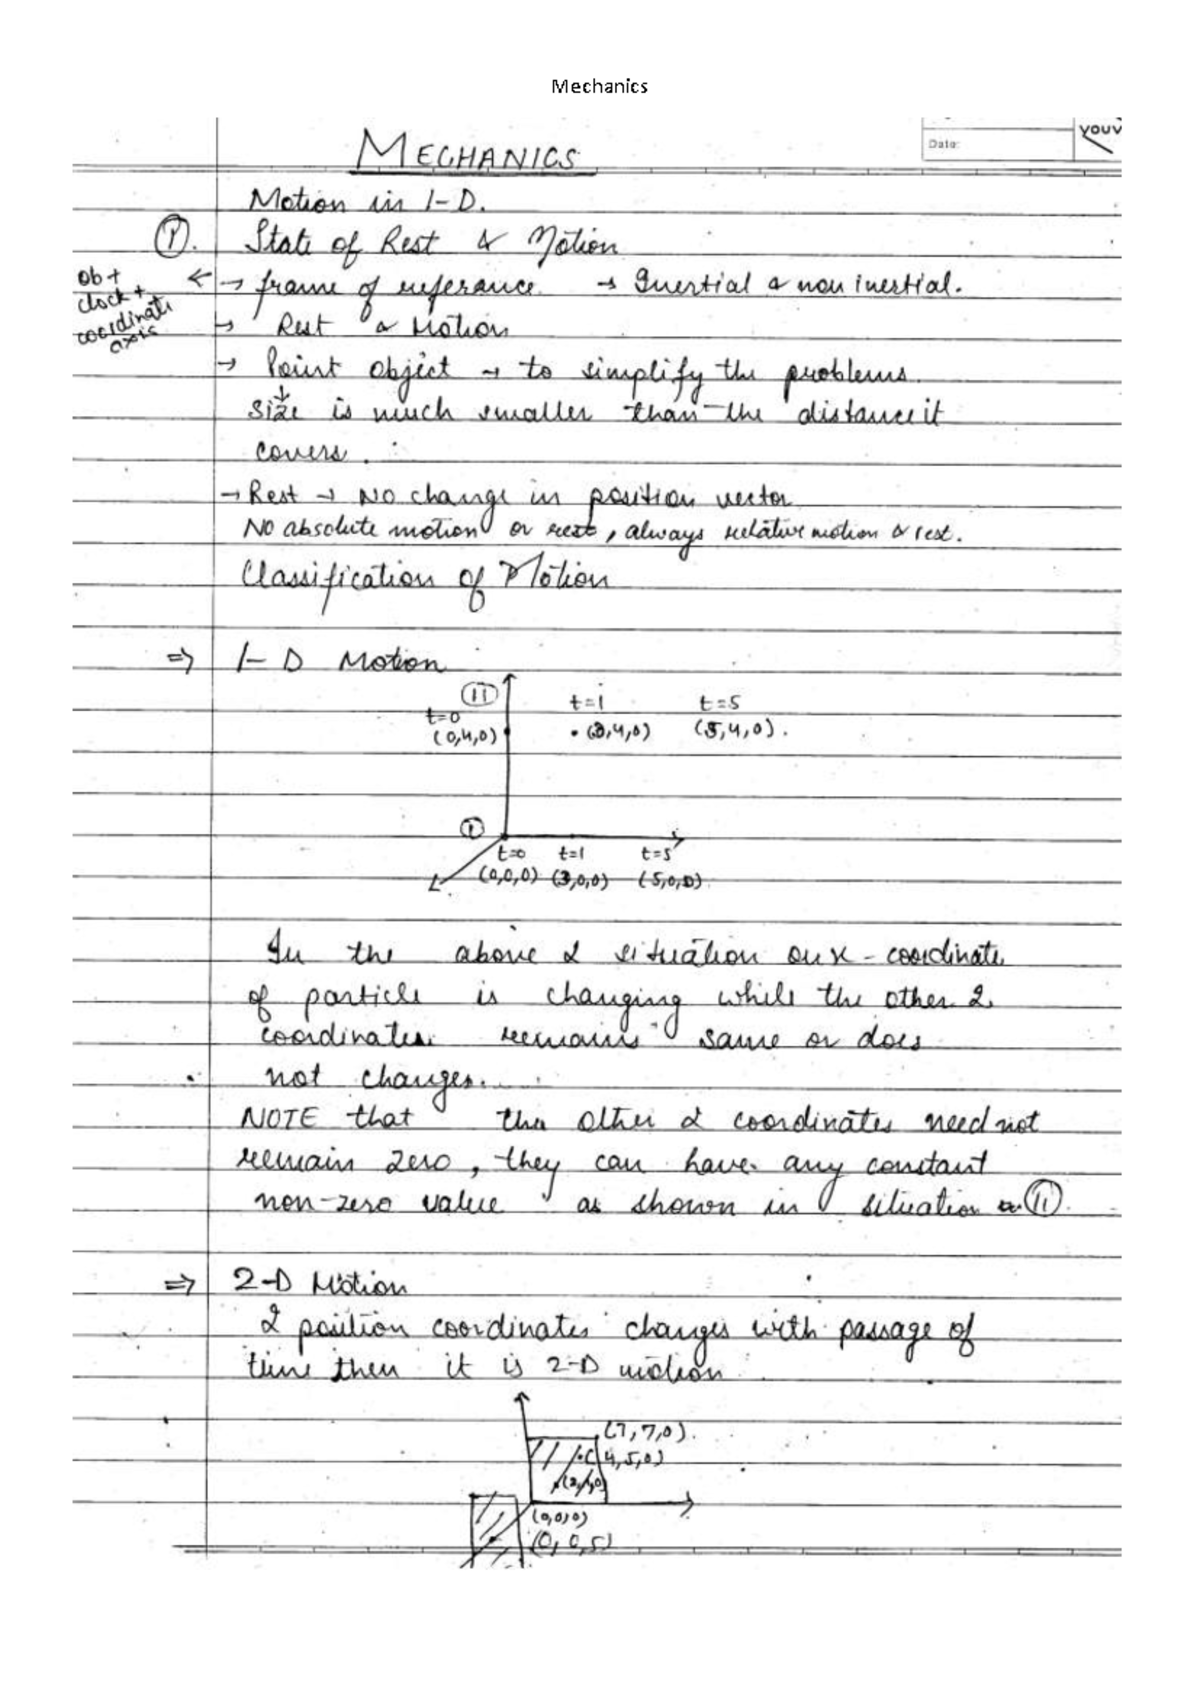 Mechanics
MECHANICS
Date:
YOUV
Motion in 1-D.
State of Rest & Motion
ob +
clock +
coordinate
axis
← → frame of referance → Inertial & non inertial.
→ Rest & Motion
→ Point object → to simplify the problems
size is much smaller than the distance it
covers.
→ Rest → No change in position vector
No absolute motion or rest, always relative motion & rest.
Classification of Motion
⇒ 1-D Motion
II
t=0
(0,4,0)
t=1
(3,4,0)
t=5
(5,4,0).
I
t=0 t=1 t=5
(0,0,0) (3,0,0) (5,0,0)
In the above 2 situation our x-coordinate
of particle is changing while the other 2
coordinates remains same or does
not changes.
NOTE that the other 2 coordinates need not
remain zero, they can have any constant
non-zero value as shown in situation II.
⇒ 2-D Motion
2 position coordinates changes with passage of
time then it is 2-D motion
(7,7,0).
(4,5,0)
(0,0,0)
(0,0,5)